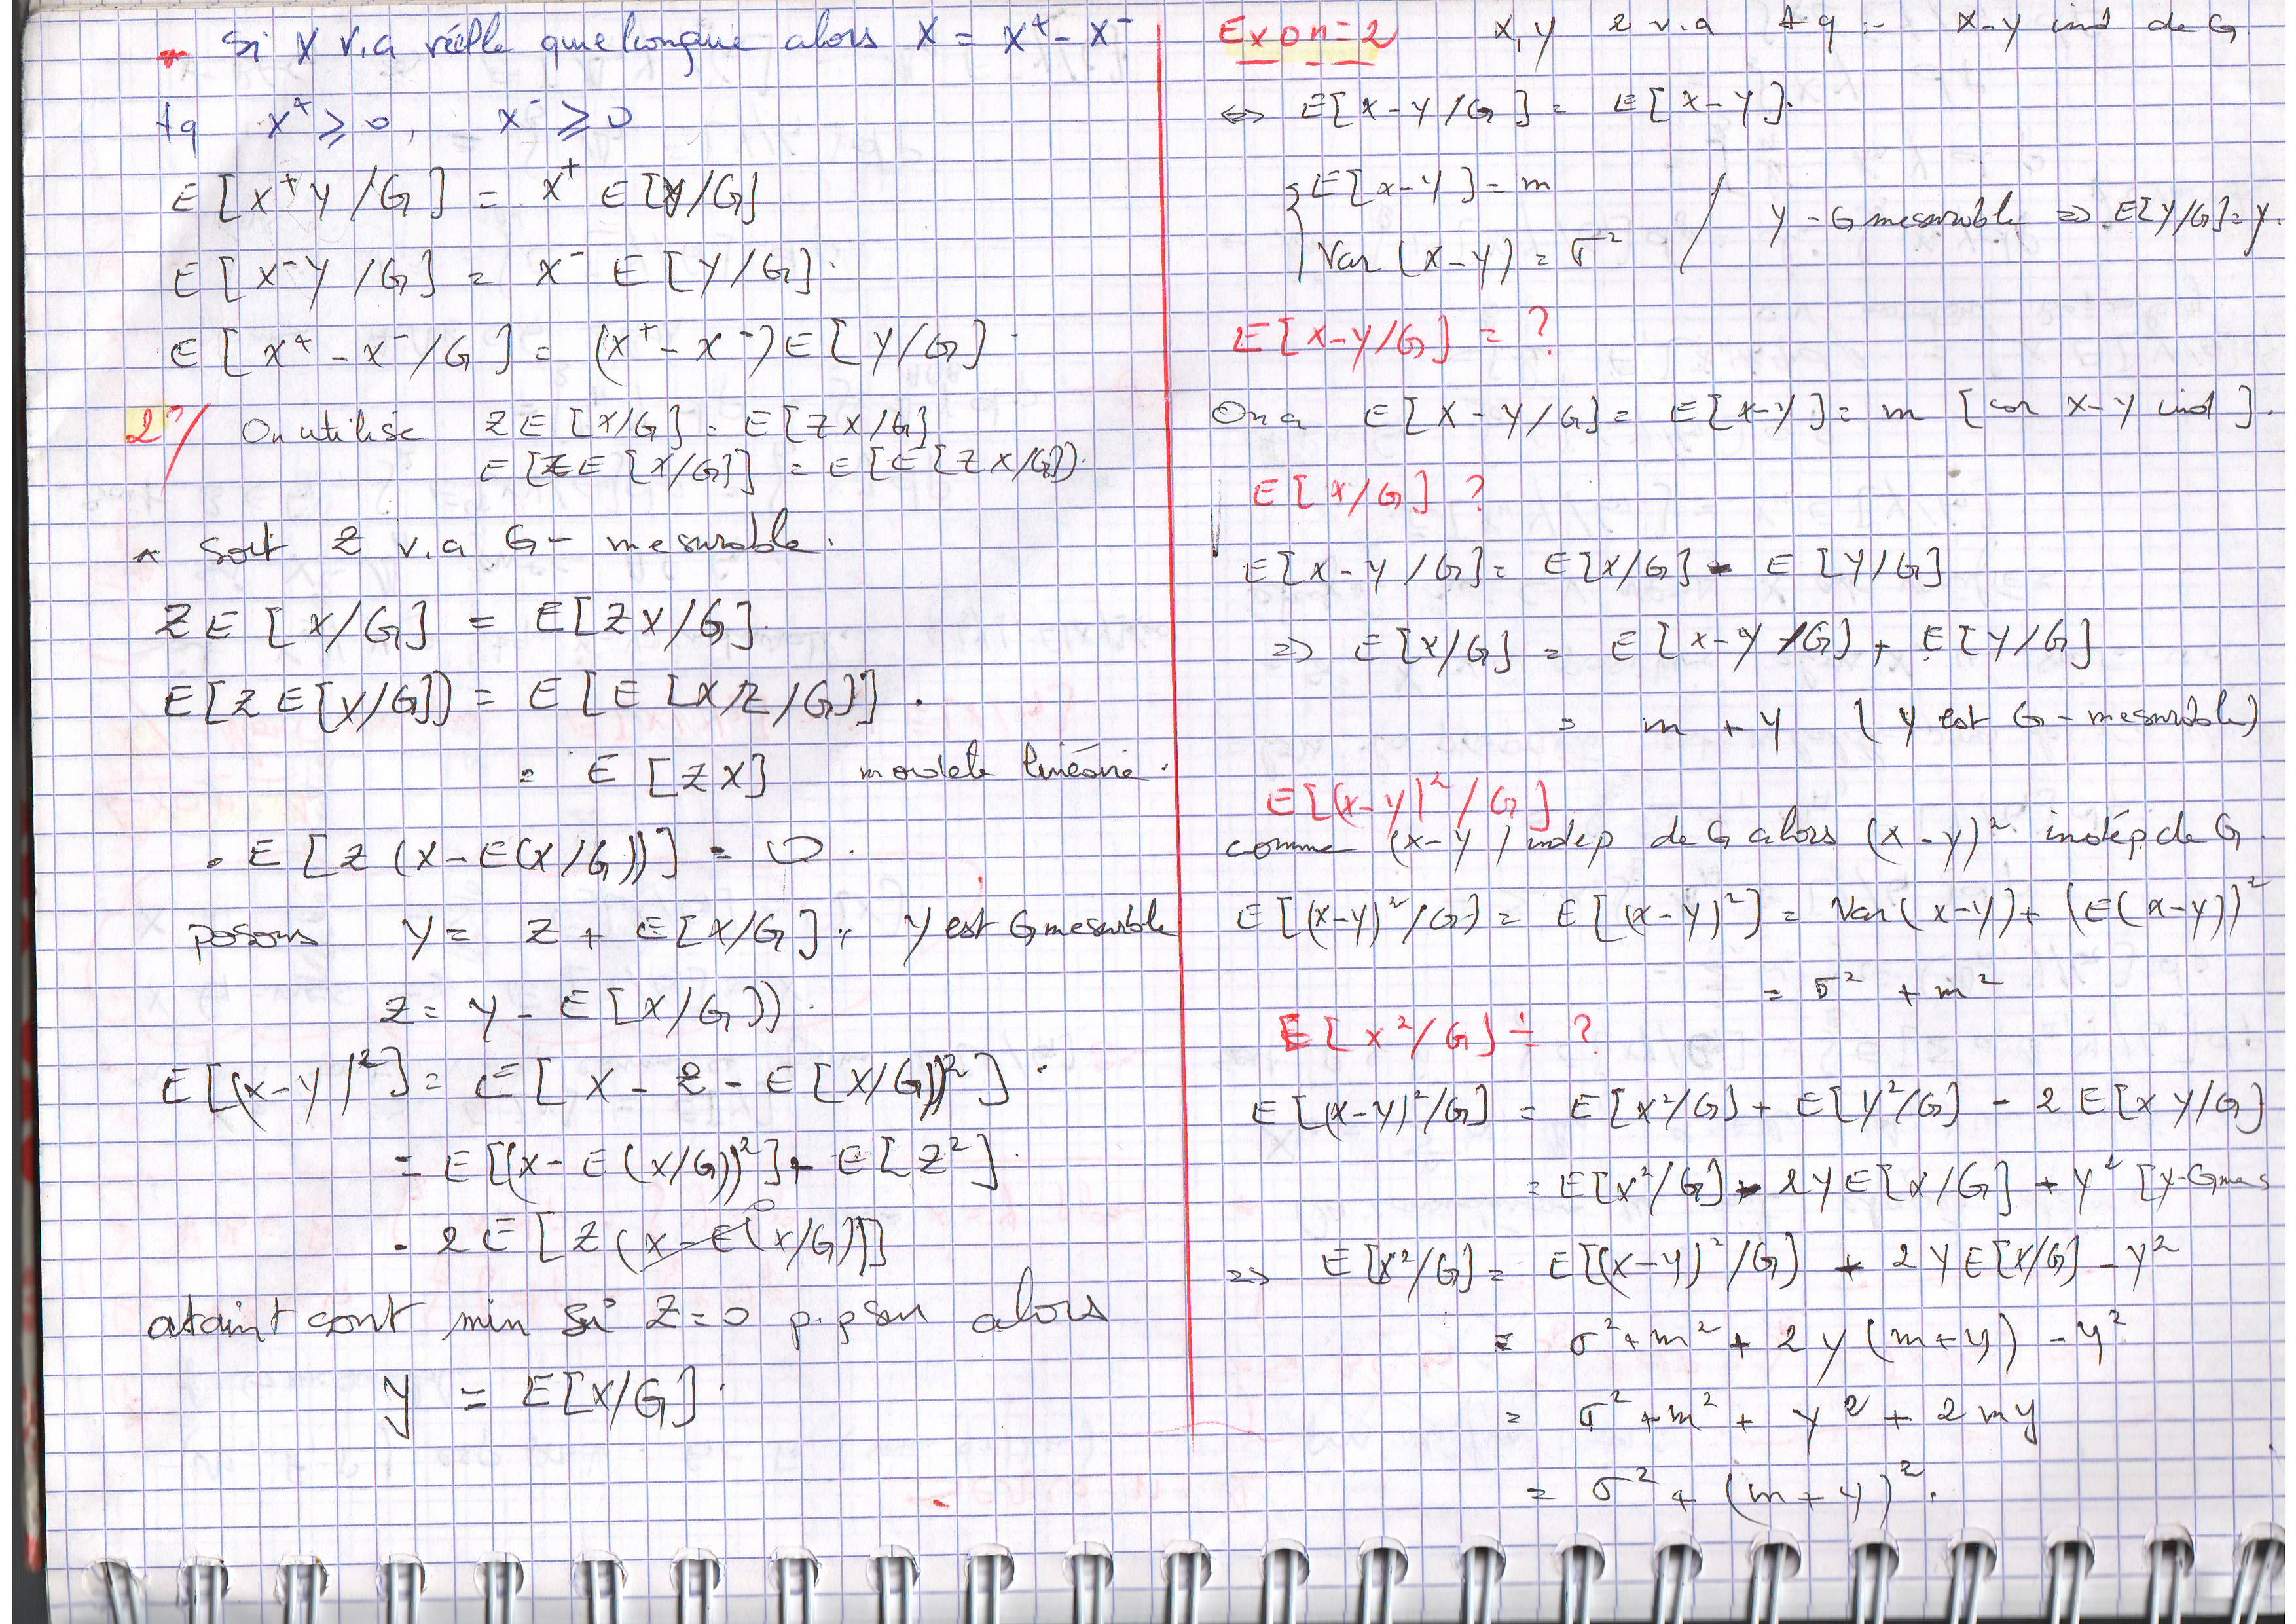 * Si X v.a réelle quelconque alors X = X⁺ - X⁻
tq X⁺ ≥ 0, X⁻ ≥ 0
E[X⁺Y/G] = X⁺ E[Y/G]
E[X⁻Y/G] = X⁻ E[Y/G].
E[X⁺ - X⁻/G] = (X⁺ - X⁻) E[Y/G].
2°/ On utilise Z E[X/G] = E[ZX/G]
E[Z E[X/G]] = E[E[ZX/G]].
* Soit Z v.a G- mesurable.
Z E[X/G] = E[ZX/G].
E[Z E[X/G]] = E[E[XZ/G]].
= E[ZX] modèle linéaire.
. E[Z(X-E(X/G))] = 0.
posons Y = Z + E[X/G], Y est G mesurable
Z = Y - E[X/G]).
E[(X-Y)²] = E[X - Z - E[X/G])²].
= E[(X-E(X/G))²] + E[Z²].
- 2E[Z(X-E(X/G))] 0
min si Z=0 alors
Y = E[X/G].
Exon=2 X, Y 2 v.a tq: X-Y ind de G.
⇔ E[X-Y/G] = E[X-Y].
{ E[X-Y] = m
Var(X-Y) = σ² / Y-G mesurable ⇒ E[Y/G]=Y.
E[X-Y/G] = ?
On a E[X-Y/G] = E[X-Y] = m [car X-Y ind].
E[X/G] ?
E[X-Y/G] = E[X/G] - E[Y/G]
⇒ E[X/G] = E[X-Y/G] + E[Y/G]
= m + Y (Y est G-mesurable)
E[(X-Y)²/G]
comme (X-Y) indep de G alors (X-Y)² indép de G.
E[(X-Y)²/G] = E[(X-Y)²] = Var(X-Y) + (E(X-Y))²
= σ² + m²
E[X²/G] = ?
E[(X-Y)²/G] = E[X²/G] + E[Y²/G] - 2E[XY/G]
= E[X²/G] - 2Y E[X/G] + Y² [Y-Gmes
⇒ E[X²/G] = E[(X-Y)²/G] + 2Y E[X/G] - Y²
= σ² + m² + 2Y(m+Y) - Y²
= σ² + m² + Y² + 2mY
= σ² + (m+Y)².